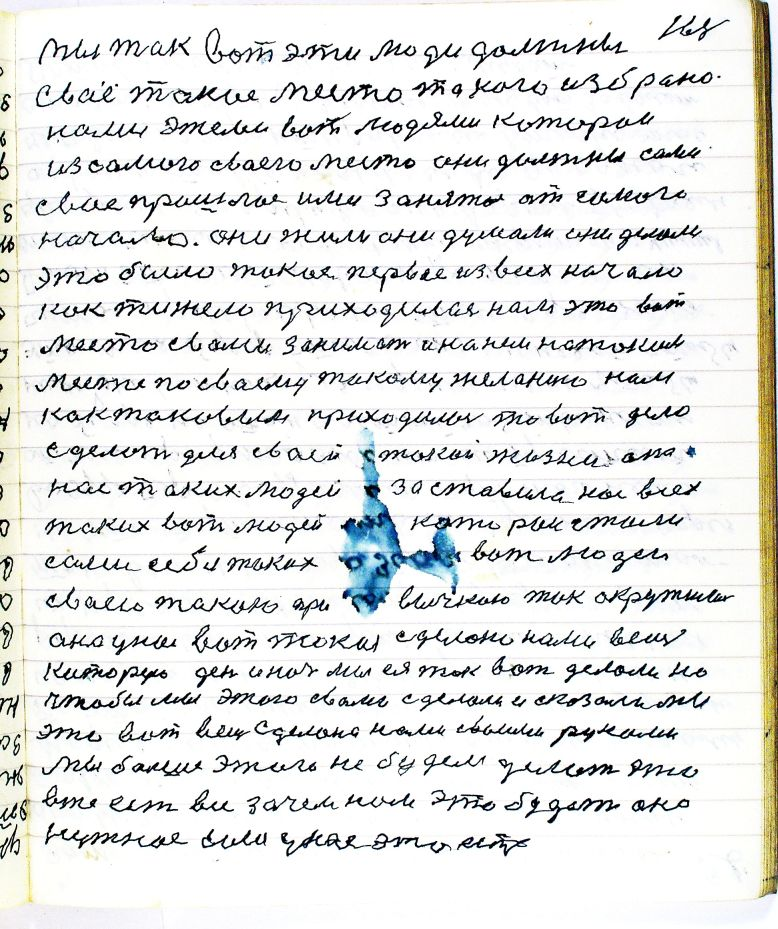 168
мы так вот эти люди должны
своё такое место такого избрано.
нами этеми вот людями которои
из самого своего место они должны сами
свое прошлое ими занято от самого
начало. они жили они думали они делали
это было такое первое из всех начало
как тижело приходилая нам это вот
место свами занимат и на нем на таком
месте по своему такому желанию нам
как таковым приходилос то вот дело
сделат для своей такой жизни она
нас таких людей заставила нас всех
таких вот людей каторыи стали
сами себя таких вот людеи
своею такою при вычкаю так окружила
она у нас вот такая сделоно нами вещ
каторую ден и ноч мы ея так вот делали но
чтобы мы этого свами сделали и сказали мы
это вот вещ сделона нами своими руками
мы болше этого не будем делат это
вже ест вы зачем нам это будет оно
нужное если у нас это есть